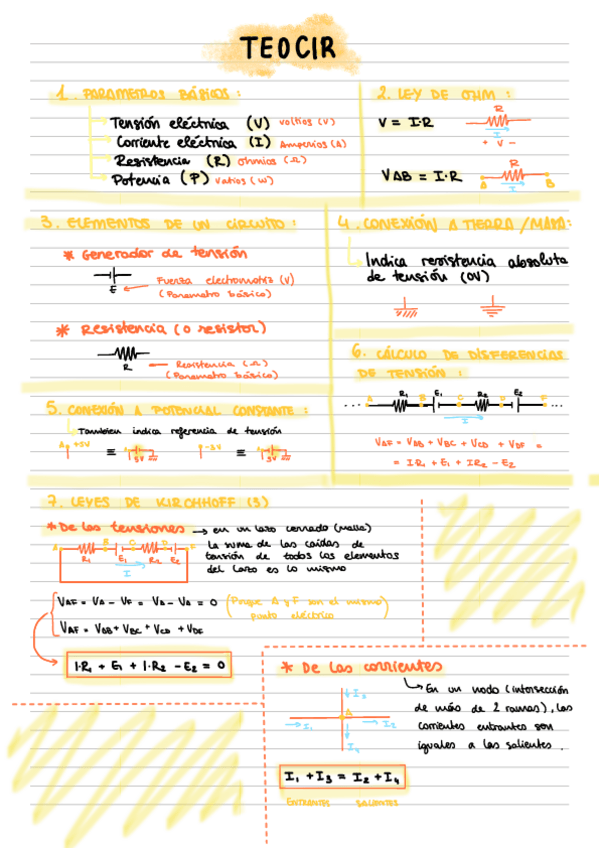 TEOCIR
1. PARAMETROS BÁSICOS :
Tensión eléctrica (V) voltios (V)
Corriente eléctrica (I) Amperios (A)
Resistencia (R) ohmios (Ω)
Potencia (P) Vatios (W)
2. LEY DE OHM :
V = I·R
R
I
+ V -
VAB = I·R
R
A
I
B
3. ELEMENTOS DE UN CIRCUITO :
* Generador de tensión
E
Fuerza electromotriz (V)
(Parametro básico)
* Resistencia (o resistor)
R
Resistencia (Ω)
(Parametro básico)
4. CONEXIÓN A TIERRA / MASA:
Indica resistencia absoluta
de tensión (0V)
5. CONEXIÓN A POTENCIAL CONSTANTE :
Tambien indica referencia de tensión
A +5V
≡
A
5V
-3V
≡
A
3V
6. CÁLCULO DE DISFERENCIAS
DE TENSIÓN :
A R1 B E1 C R2 D E2 F
I
VAF = VAB + VBC + VCD + VDF =
= I·R1 + E1 + I·R2 - E2
7. LEYES DE KIRCHHOFF (3)
* De las tensiones → en un lazo cerrado (malla)
La suma de las caidas de
tensión de todos los elementos
del lazo es lo mismo
A B C D F
R1 E1 R2 E2
I
VAF = VA - VF = VA - VA = 0 (Porque A y F son el mismo)
punto eléctrico
VAF = VAB + VBC + VCD + VDF
I·R1 + E1 + I·R2 - E2 = 0
* De las corrientes
En un nodo (intersección
de más de 2 ramas), las
corrientes entrantes son
iguales a las salientes.
I3
A
I1
I2
I4
I1 + I3 = I2 + I4
ENTRANTES SALIENTES